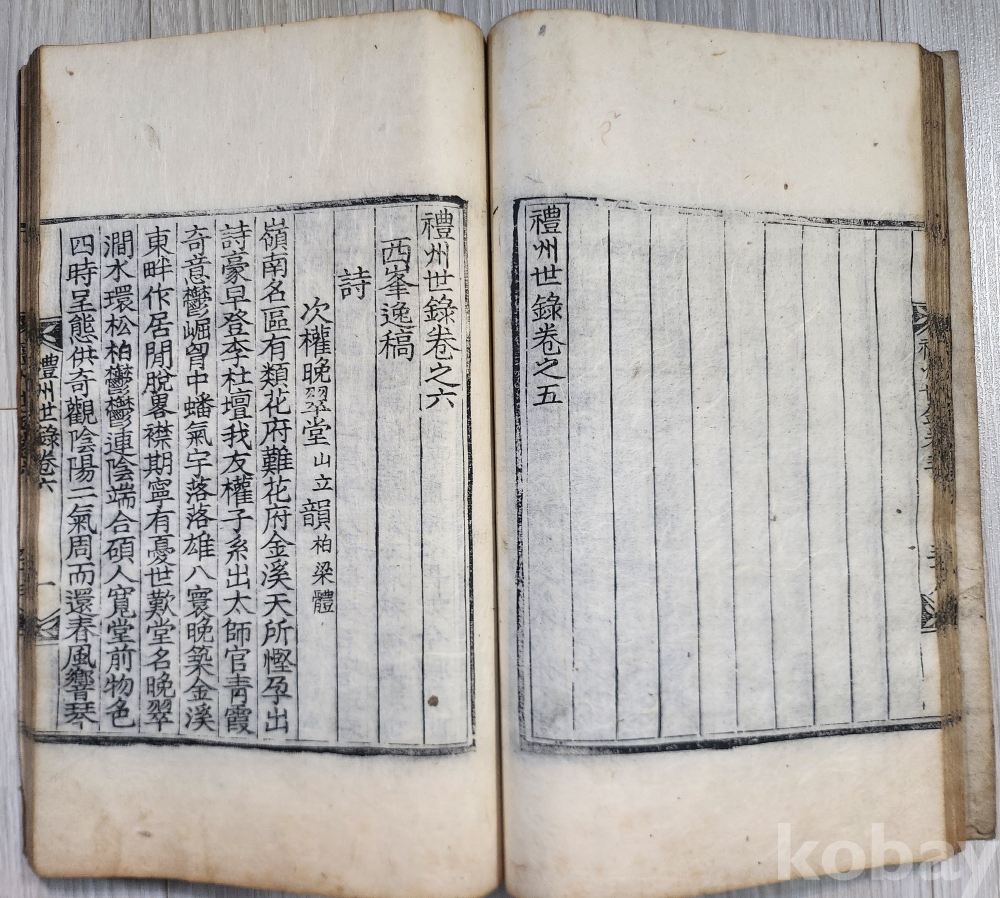 禮州世錄卷之五
禮州世錄卷之六
西峯逸稿
詩
次權晩翠堂山立韻柏梁體
嶺南名區有類花府難花府金溪天所慳孕出
詩豪早登李杜壇我友權子系出太師官靑霞
奇意鬱崛胷中蟠氣宇落落雄八寰晩築金溪
東畔作居閒脫畧襟期寧有憂世歎堂名晩翠
澗水環松柏鬱鬱連陰端合碩人寬堂前物色
四時呈態供奇觀陰陽二氣周而還春風響琴
禮州世錄卷六
一
kobay